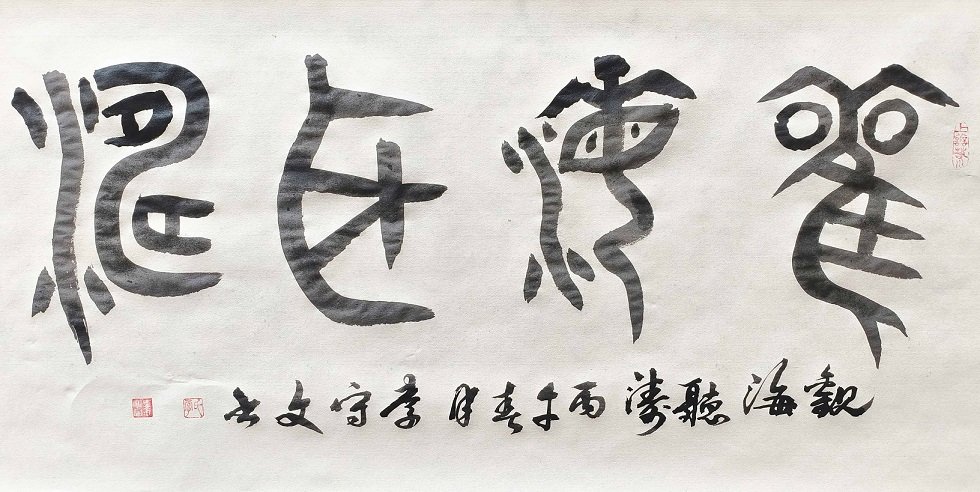 觀海聽濤
觀海聽濤丙午春月李守文书